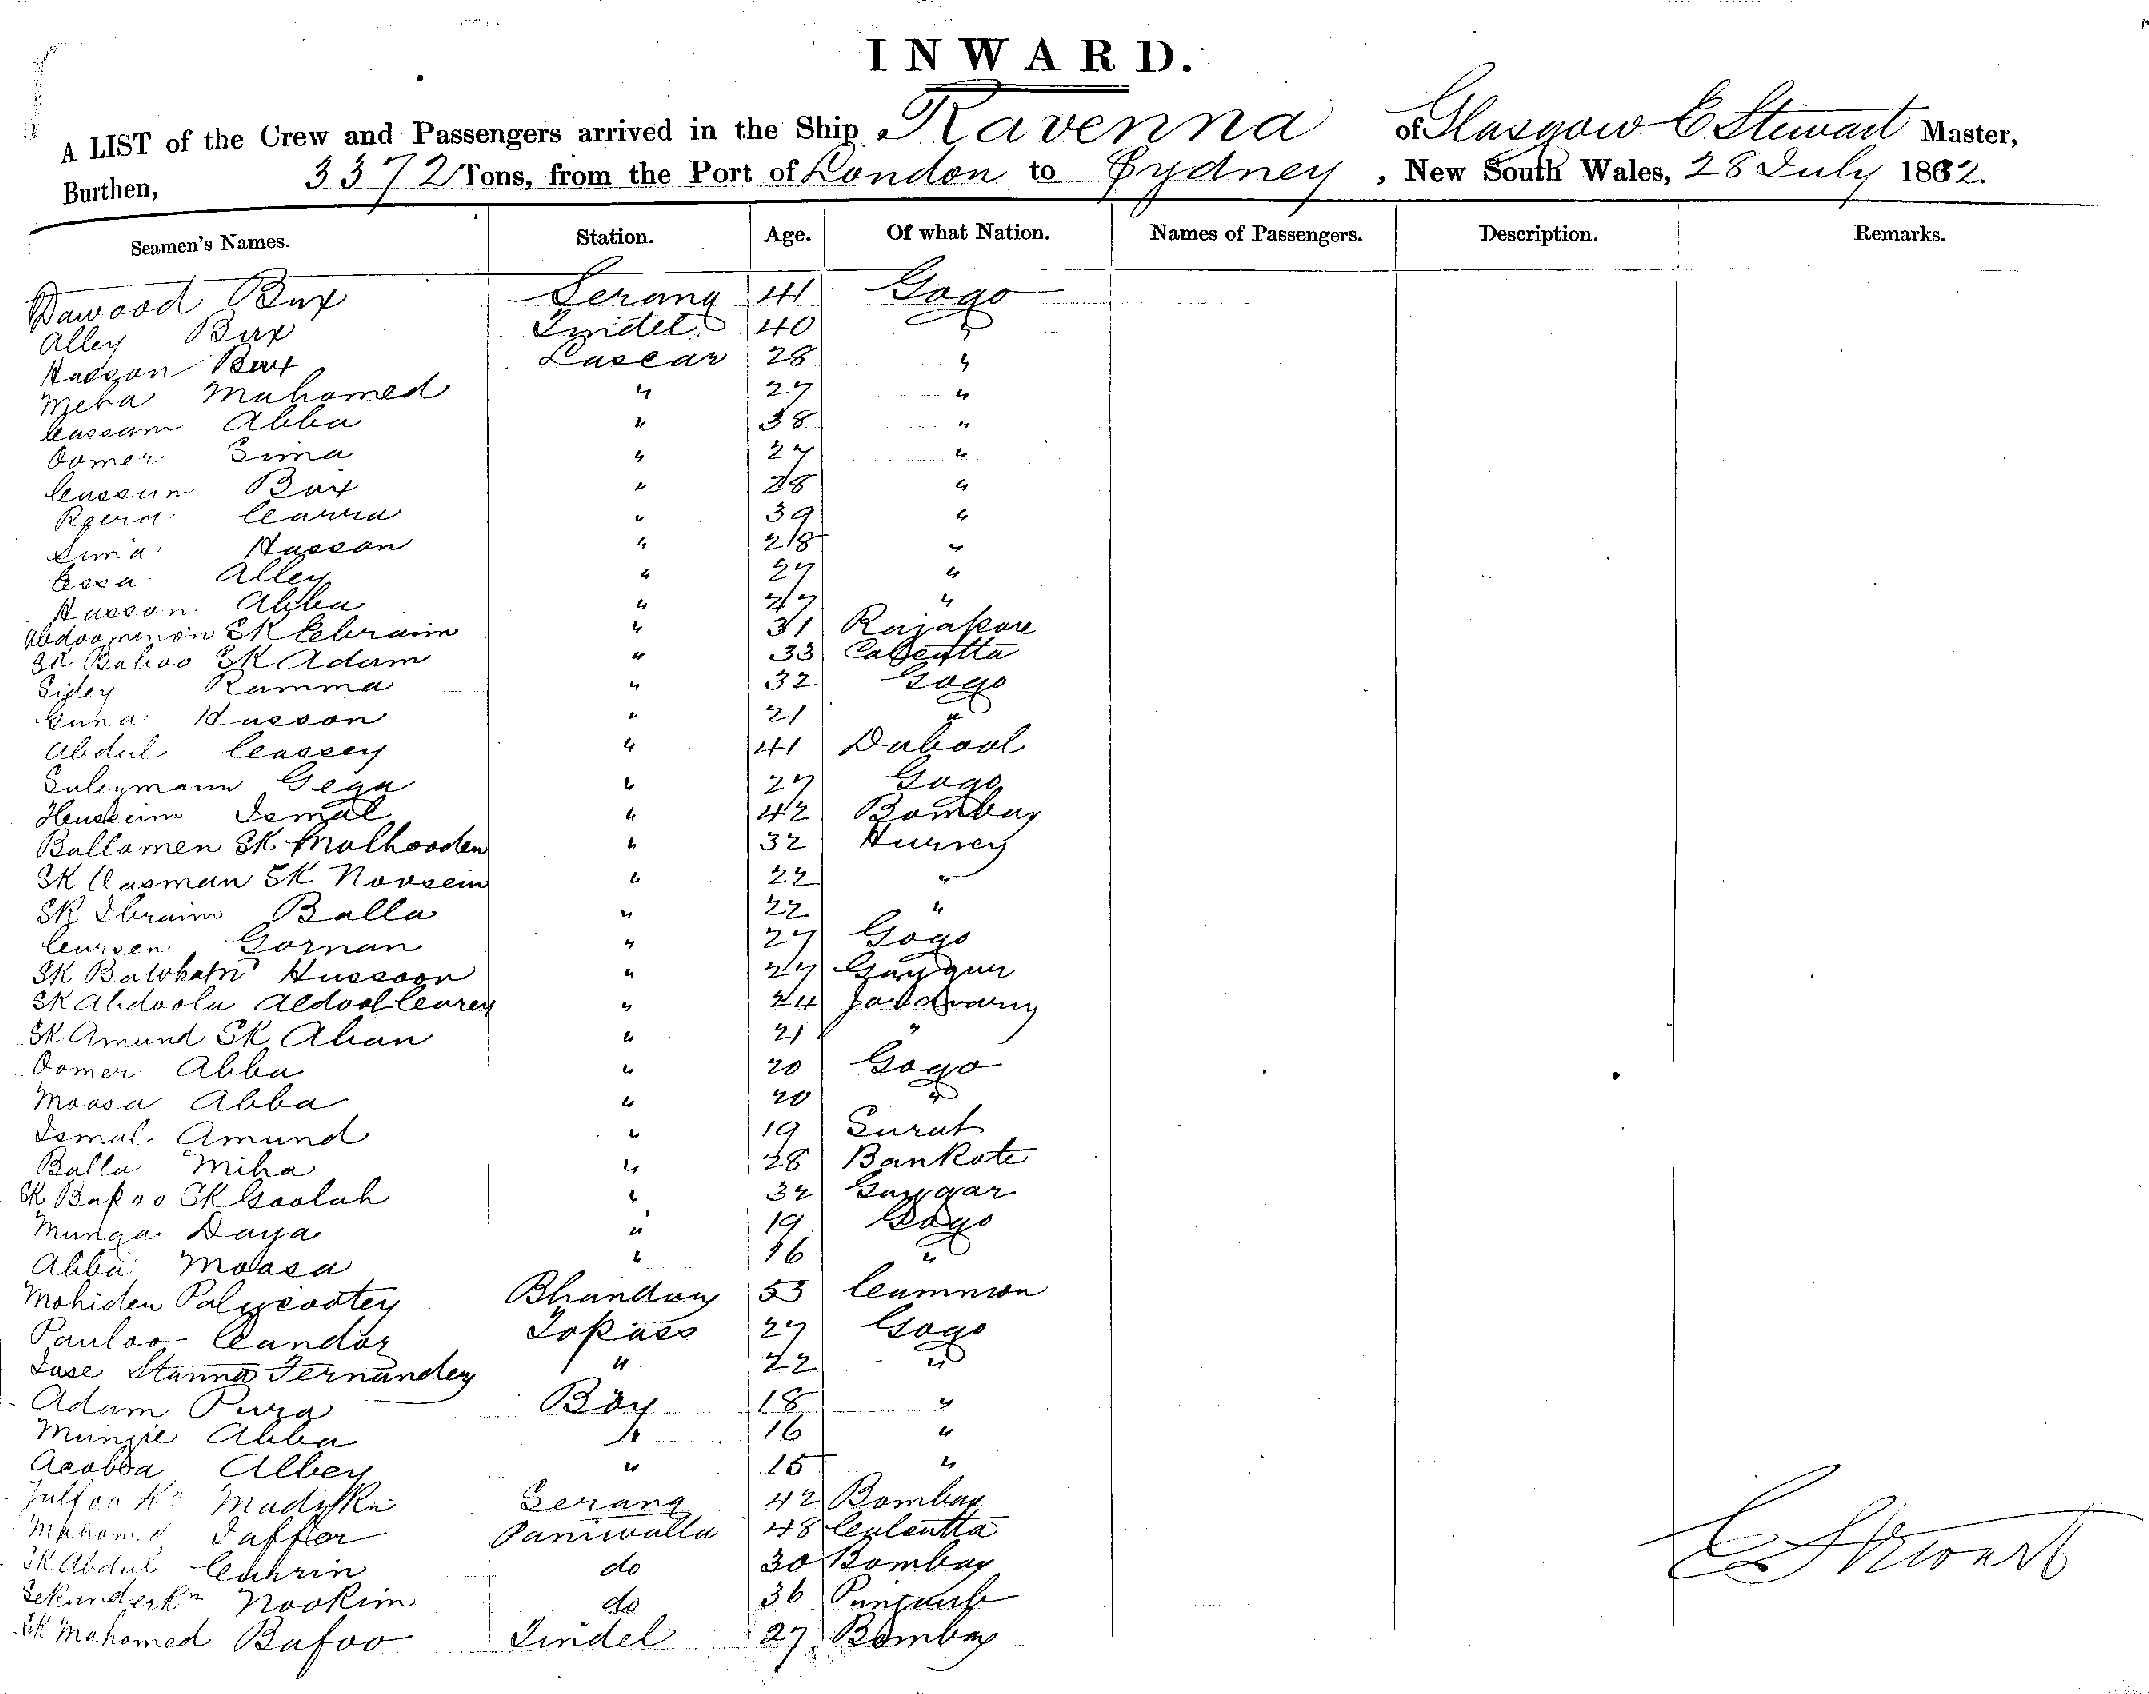 INWARD.
A LIST of the Crew and Passengers arrived in the Ship Ravenna of Glasgow C Stewart Master,
Burthen, 3372 Tons, from the Port of London to Sydney, New South Wales, 28 July 1882.
Seamen's Names. Station. Age. Of what Nation. Names of Passengers. Description. Remarks.
Dawood Bux Serang 41 Gogo
Alley Bux Tindel 40 "
Hasson Bux Lascar 28 "
Meha Mahomed " 27 "
Cassam Abba " 38 "
Oomer Sima " 27 "
Cassim Bux " 28 "
" 39 "
Sima Hasson " 28 "
Essa Alley " 27 "
Hasson Abba " 27 "
SK Ebraim " 31 Rajapore
SK Baboo SK Adam " 33 Calcutta
Sidey Ramma " 32 Gogo
Hasson " 21 "
Abdul Cassey " 41 Dabool
Suleymann Gega " 27 Gogo
Hussein Ismal " 42 Bombay
Ballamen SK " 32 Hurney
SK Oasman SK Noosein " 22 "
SK Ibraim Balla " 22 "
Gornan " 27 Gogo
SK Hussoon " 27
SK Abdoola " 24
SK Amund SK Ahan " 21 "
Oomer Abba " 20 Gogo
Moosa Abba " 20 "
Ismal Amund " 19 Surat
Balla Miha " 28 Bankote
SK SK Goolah " 32
Munga Daya " 19 Gogo
Abba Moosa " 16 "
Mohiden 53
Pauloo Candor Topass 27 Gogo
Jose Fernandez " 22 "
Adam Pura Boy 18 "
Munjie Abba " 16 "
Alley " 15 "
Serang 42 Bombay
Mahomed Jaffer Paniwalla 48 Calcutta
SK Abdul do 30 Bombay
Nookim do 36
SK Mahomed Bafoo Tindel 27 Bombay
C Stewart